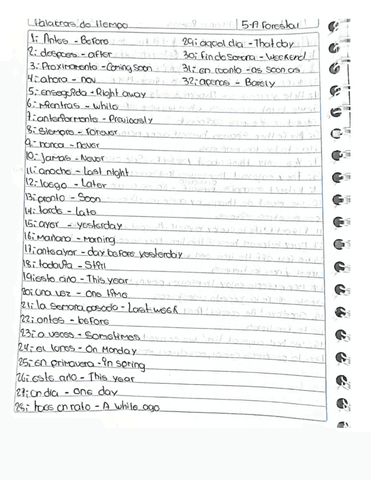 Palabras de tiempo 5-A Forestal
1: Antes - Before 29: aquel dia - That day
2: despues - after 30: Fin de semana - Weekend
3: Proximamente - Coming soon 31: en cuanto - as soon as
4: ahora - now 32: apenas - Barely
5: enseguida - Right away
6: Mientras - while
7: anteriormente - Previously
8: Siempre - Forever
9: nunca - never
10: Jamas - Never
11: anoche - Last night
12: luego - Later
13: pronto - Soon
14: tarde - Late
15: ayer - yesterday
16: Mañana - Morning
17: anteayer - day before yesterday
18: todavia - Still
19: este año - This year
20: una vez - one time
21: la semana pasada - Last week
22: antes - before
23: a veces - Sometimes
24: el lunes - On Monday
25: En primavera - In spring
26: este año - This year
27: un dia - one day
28: hace un rato - A while ago